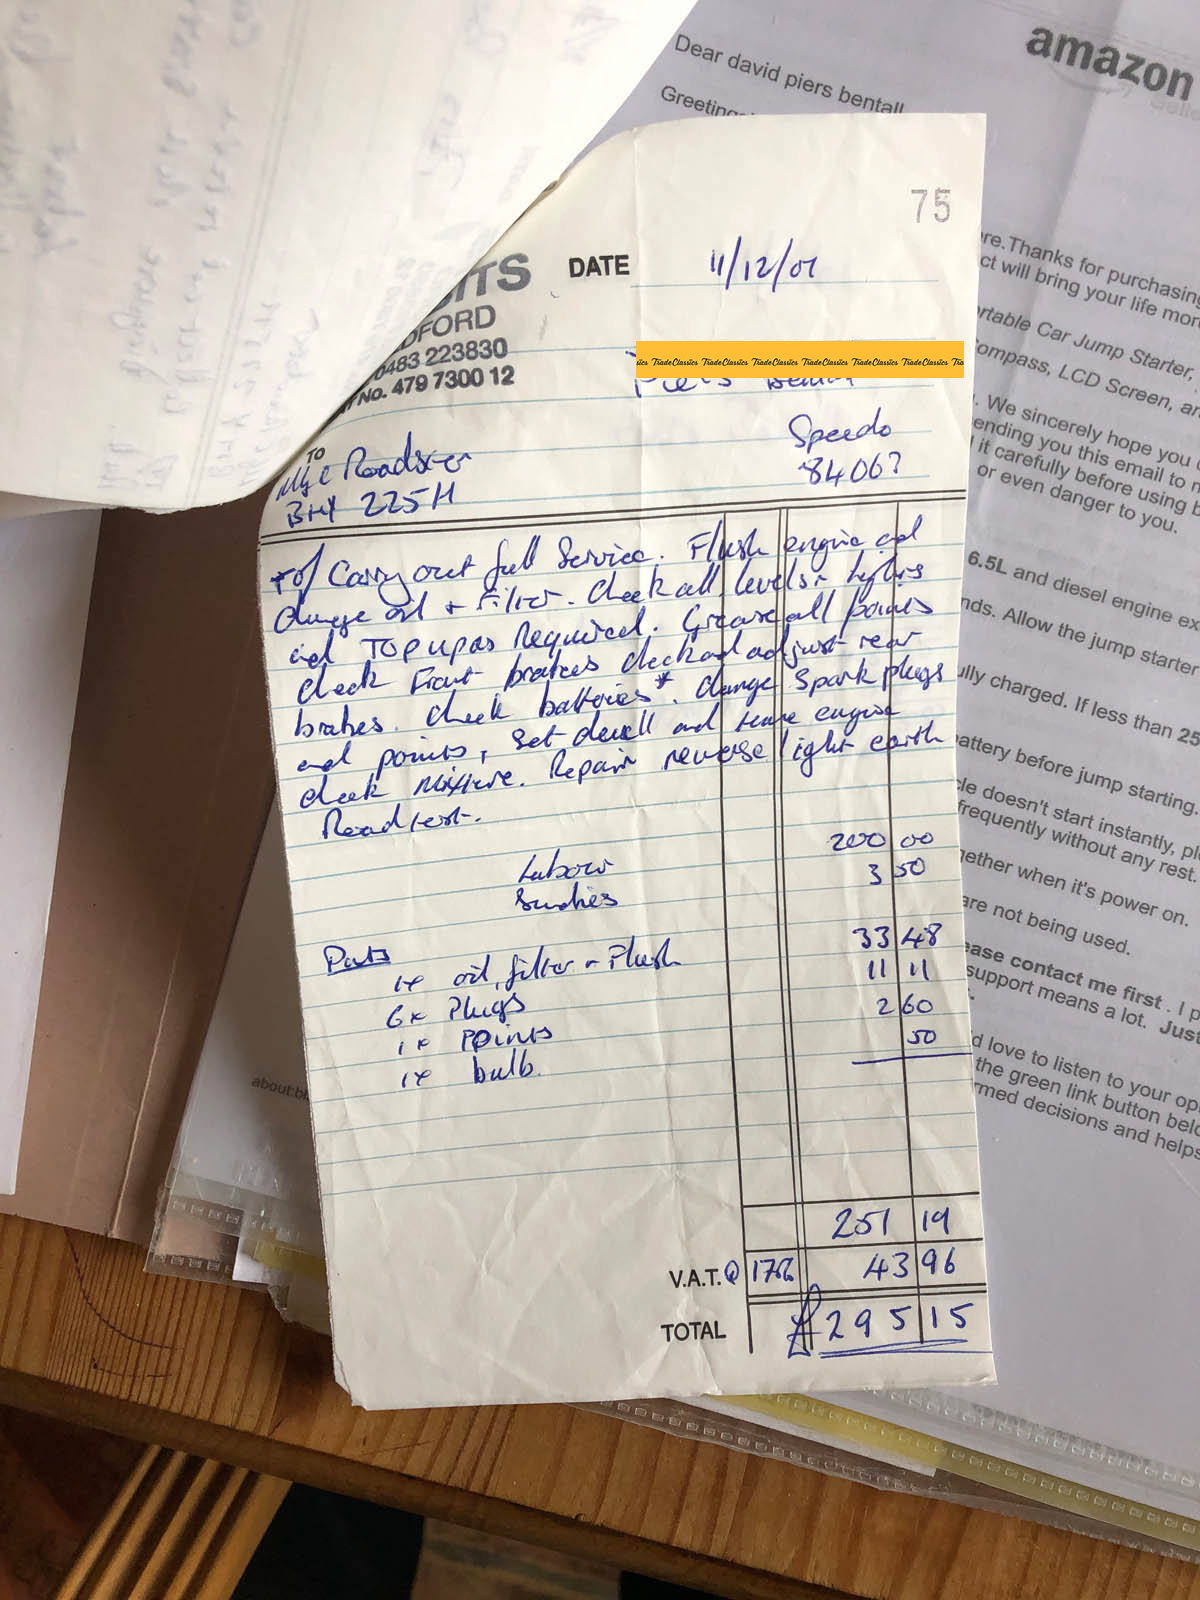 amazon
Dear david piers bentall
75
DATE 11/12/01
0483 223830
No. 479 7300 12
TradeClassics TradeClassics TradeClassics TradeClassics TradeClassics TradeClassics
Piers
TO
MGC Roadster
BHY 225H
Speedo
84067
To/ Carry out full Service. Flush engine and
change oil + Filter. Check all levels + lights
and Top up as Required. Grease all points
check Front brakes check and adjust rear
brakes. Check batteries*. Change Spark plugs
and points, Set dwell and tune engine
check mixture. Repair reverse light earth
Roadtest.
Labour 200 00
Sundries 3 50
Parts
1x oil, filter + Flush 33 48
6x Plugs 11 11
1x Points 2 60
1x bulb. 50
251 19
V.A.T. @ 17½% 43 96
TOTAL £295 15
Thanks for purchasing
ct will bring your life
Car Jump Starter,
LCD Screen,
We sincerely hope you
ending you this email to
it carefully before using
or even danger to you.
6.5L and diesel engine
Allow the jump starter
charged. If less than 25
before jump starting.
doesn't start instantly,
frequently without any rest.
when it's power on.
are not being used.
contact me first. I
support means a lot. Just
love to listen to your
the green link button
decisions and helps